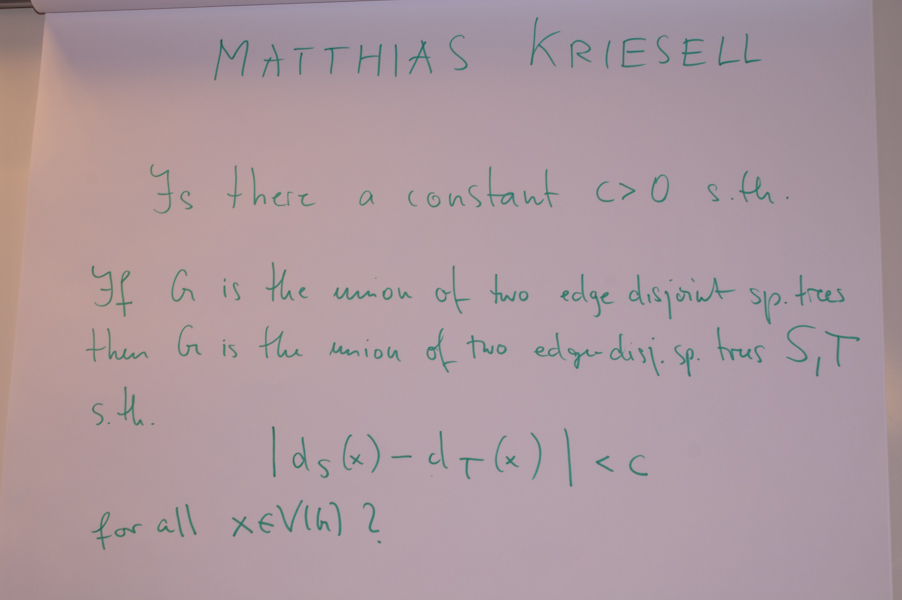 MATTHIAS KRIESELL
Is there a constant c>0 s.th.
If G is the union of two edge disjoint sp. trees
then G is the union of two edge-disj. sp. trees S,T
s.th.
|d_S(x) - d_T(x)| < c
for all x∈V(G) ?